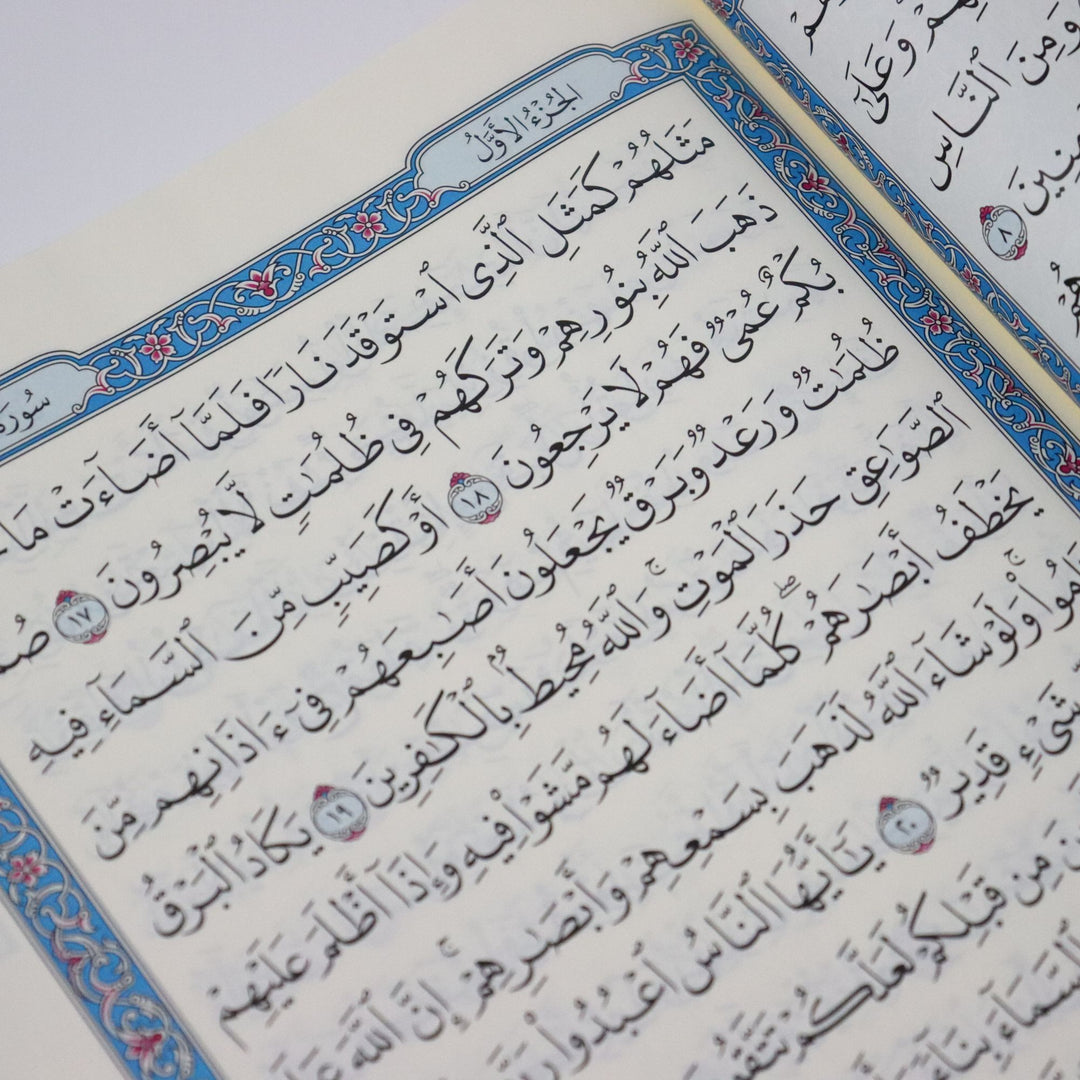 الجُزْءُ الأَوَّلُ
سُورَة
مَثَلُهُمْ كَمَثَلِ ٱلَّذِى ٱسْتَوْقَدَ نَارًا فَلَمَّآ أَضَآءَتْ مَا
ذَهَبَ ٱللَّهُ بِنُورِهِمْ وَتَرَكَهُمْ فِى ظُلُمَٰتٍ لَّا يُبْصِرُونَ ١٧
بُكْمٌ عُمْىٌ فَهُمْ لَا يَرْجِعُونَ ١٨ أَوْ كَصَيِّبٍ مِّنَ ٱلسَّمَآءِ فِيهِ
ظُلُمَٰتٌ وَرَعْدٌ وَبَرْقٌ يَجْعَلُونَ أَصَٰبِعَهُمْ فِىٓ ءَاذَانِهِم مِّنَ
ٱلصَّوَٰعِقِ حَذَرَ ٱلْمَوْتِ ۚ وَٱللَّهُ مُحِيطٌۢ بِٱلْكَٰفِرِينَ ١٩ يَكَادُ ٱلْبَرْقُ
يَخْطَفُ أَبْصَٰرَهُمْ ۖ كُلَّمَآ أَضَآءَ لَهُم مَّشَوْا۟ فِيهِ وَإِذَآ أَظْلَمَ عَلَيْهِمْ
وَلَوْ شَآءَ ٱللَّهُ لَذَهَبَ بِسَمْعِهِمْ وَأَبْصَٰرِهِمْ ۚ إِنَّ ٱللَّهَ
شَىْءٍ قَدِيرٌ ٢٠ يَٰٓأَيُّهَا ٱلنَّاسُ ٱعْبُدُوا۟
مِن قَبْلِكُمْ لَعَلَّكُمْ تَتَّقُونَ
ٱلسَّمَآءَ بِنَآءً
وَعَلَىٰٓ
وَمِنَ ٱلنَّاسِ
٨